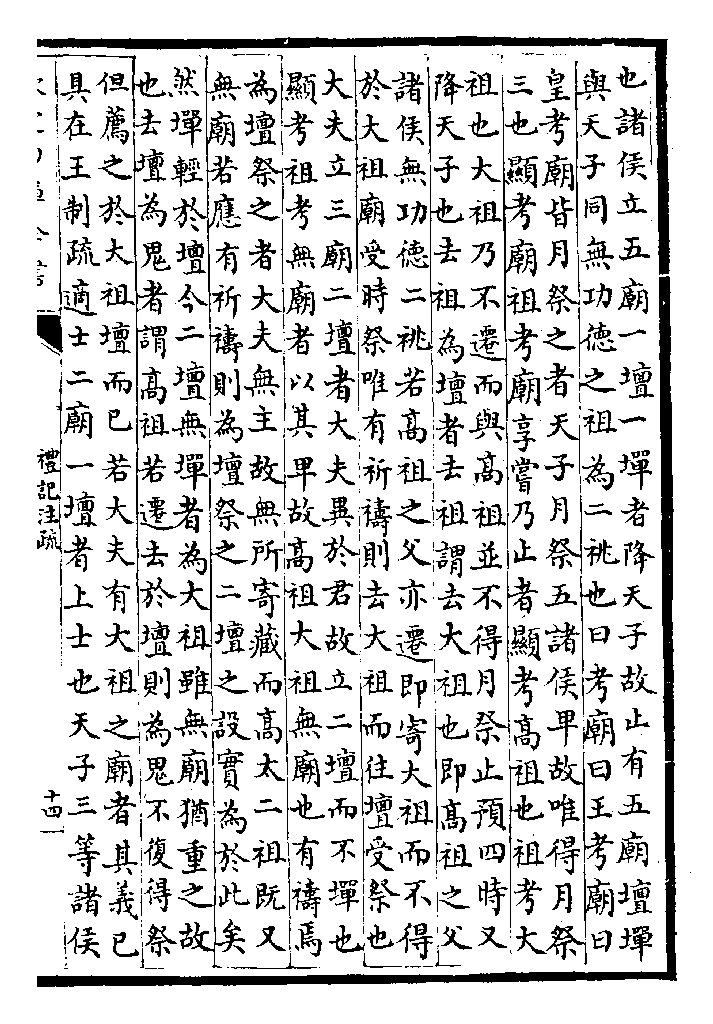 也諸侯立五廟一壇一墠者降天子故止有五廟壇墠
與天子同無功德之祖為二祧也曰考廟曰王考廟曰
皇考廟皆月祭之者天子月祭五諸侯卑故唯得月祭
三也顯考廟祖考廟享嘗乃止者顯考高祖也祖考大
祖也大祖乃不遷而與高祖並不得月祭止預四時又
降天子也去祖為壇者去祖謂去大祖也即高祖之父
諸侯無功德二祧若高祖之父亦遷即寄大祖而不得
於大祖廟受時祭唯有祈禱則去大祖而往壇受祭也
大夫立三廟二壇者大夫異於君故立二壇而不墠也
顯考祖考無廟者以其卑故高祖大祖無廟也有禱焉
為壇祭之者大夫無主故無所寄藏而高太二祖既又
無廟若應有祈禱則為壇祭之二壇之設實為於此矣
然墠輕於壇今二壇無墠者為大祖雖無廟猶重之故
也去壇為鬼者謂高祖若遷去於壇則為鬼不復得祭
但薦之於大祖壇而已若大夫有大祖之廟者其義已
具在王制疏適士二廟一壇者上士也天子三等諸侯
禮記注疏
十四